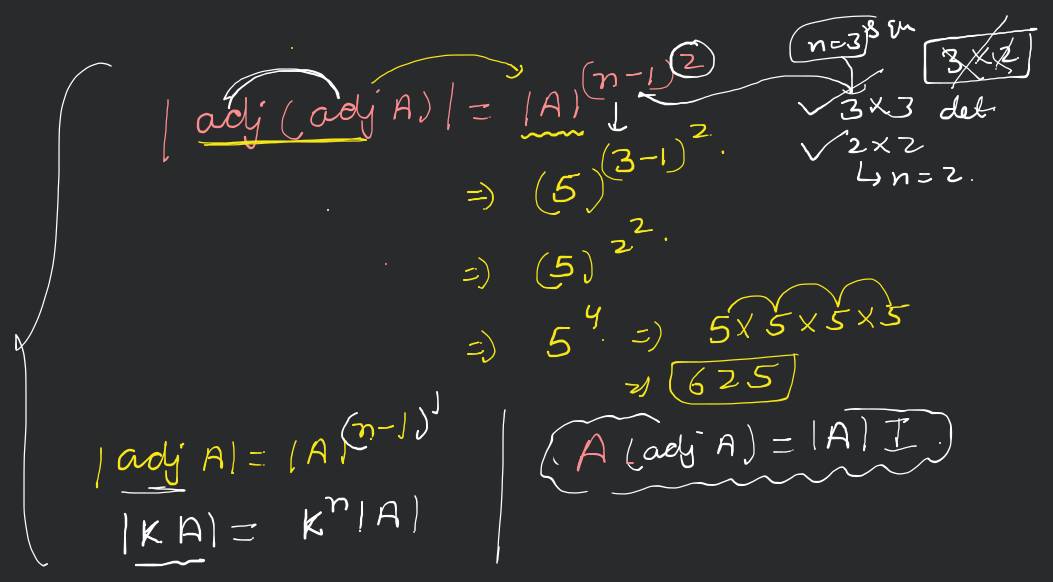 | adj (adj A) | = |A|^(n-1)^2
n=3 squ
3×2
3×3 det
2×2
↳ n=2.
⇒ (5)^(3-1)^2.
⇒ (5)^2^2.
⇒ 5^4. ⇒ 5×5×5×5
⇒ 625
|adj A| = |A|^(n-1)^1
A (adj A) = |A| I
|K A| = K^n |A|